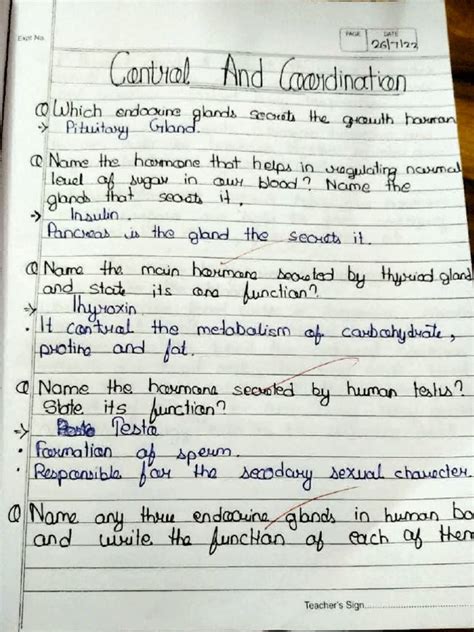 Expt. No.
PAGE
DATE
26/7/22
Control And Coordination
Q Which endocrine glands secrets the growth harman
→ Pituitary Gland.
Q Name the harmone that helps in regulating normal
level of sugar in our blood? Name the
glands that secrets it.
→ Insulin.
Pancreas is the gland the secrets it.
Q Name the main harmone secreted by thyriod gland
and state its one function?
→ Thyroxin.
• It control the metabolism of carbohydrate,
protine and fat.
Q Name the harmone secreted by human testis?
State its function?
→ Testo
• Formation of sperm.
• Responsible for the secodary sexual character
Q Name any three endocrine glands in human bo
and write the function of each of them
Teacher's Sign